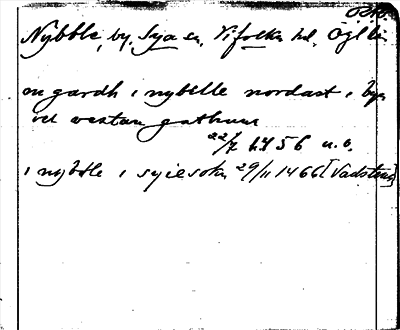 Nybble, by, Sya sn, Vifolka hd, Ögl län
en gardh i nybelle nordast i by
vil westan gathune
22/7 1456 u.o.
i nybble i syiesokn 29/11 1466 [Vadstena]